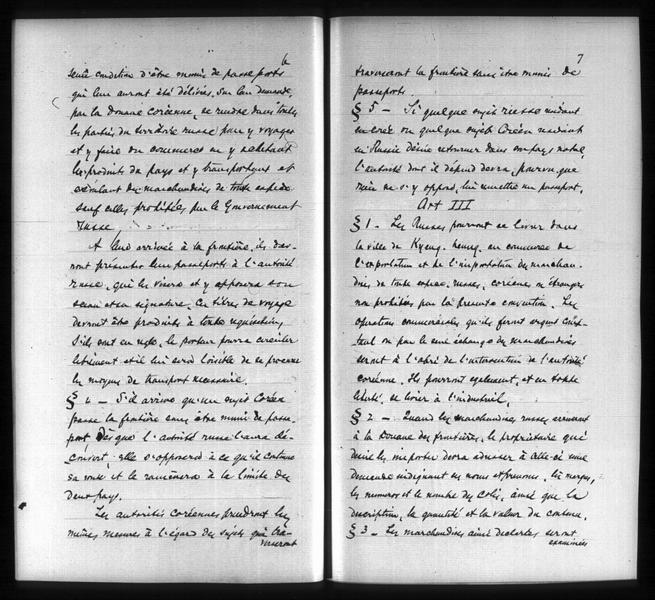 6
seule condition d'être munis de passe ports
qui leur auront été délivrés, sur leur demande,
par la Douane coréenne, se rendre dans toutes
les parties du territoire russe pour y voyager
et y faire du commerce en y achetant
les produits du pays et y transportant et
écoulant des marchandises de toute espèce
sauf celles prohibées par le Gouvernement
russe.
A leur arrivée à la frontière, ils dev-
ront présenter leur passeports à l'autorité
russe, qui les visera et y apposera son
sceau et sa signature. Ces titres de voyage
devront être produits à toute réquisition,
S'ils sont en règle, le porteur pourra circuler
librement et il lui sera loisible de se procurer
les moyens de transport nécessaire.
§ 4 - S'il arrive qu'un sujet Coréen
passe la frontière sans être muni de passe-
port, dès que l'autorité russe l'aura dé-
couvert, elle s'opposera à ce qu'il continue
sa route et le ramènera à la limite des
deux pays.
Les autorités coréennes prendront les
mêmes mesures à l'égard des sujets qui tra-
verseront
7
traverseront la frontière sans être munis de
passeports.
§ 5 - Si quelque sujet russe résidant
en Corée ou quelque sujet Coréen résidant
en Russie désire retourner dans son pays natal,
l'autorité dont il dépend devra, pourvu que
rien ne s'y oppose, lui remettre un passeport.
Art III
§ 1 - Les Russes pourront se livrer dans
la ville de Kyeng-heung au commerce de
l'exportation et de l'importation des marchan-
dises de toute espèce, russes, coréennes ou étrangères
non prohibées par la présente convention. Les
opérations commerciales qu'ils feront argent comp-
tant ou par le seul échange de marchandises
seront à l'abri de l'intervention de l'autorité
coréenne. Ils pourront également, et en toute
liberté, se livrer à l'industrie.
§ 2 - Quand les marchandises russes arriveront
à la Douane des frontières, le propriétaire qui
désire les importer devra adresser à celle-ci une
demande indiquant ses noms et prénoms, les marques,
les numéros et le nombre des colis, ainsi que la
description, la quantité et la valeur du contenu.
§ 3 - Les marchandises ainsi déclarées seront
examinées